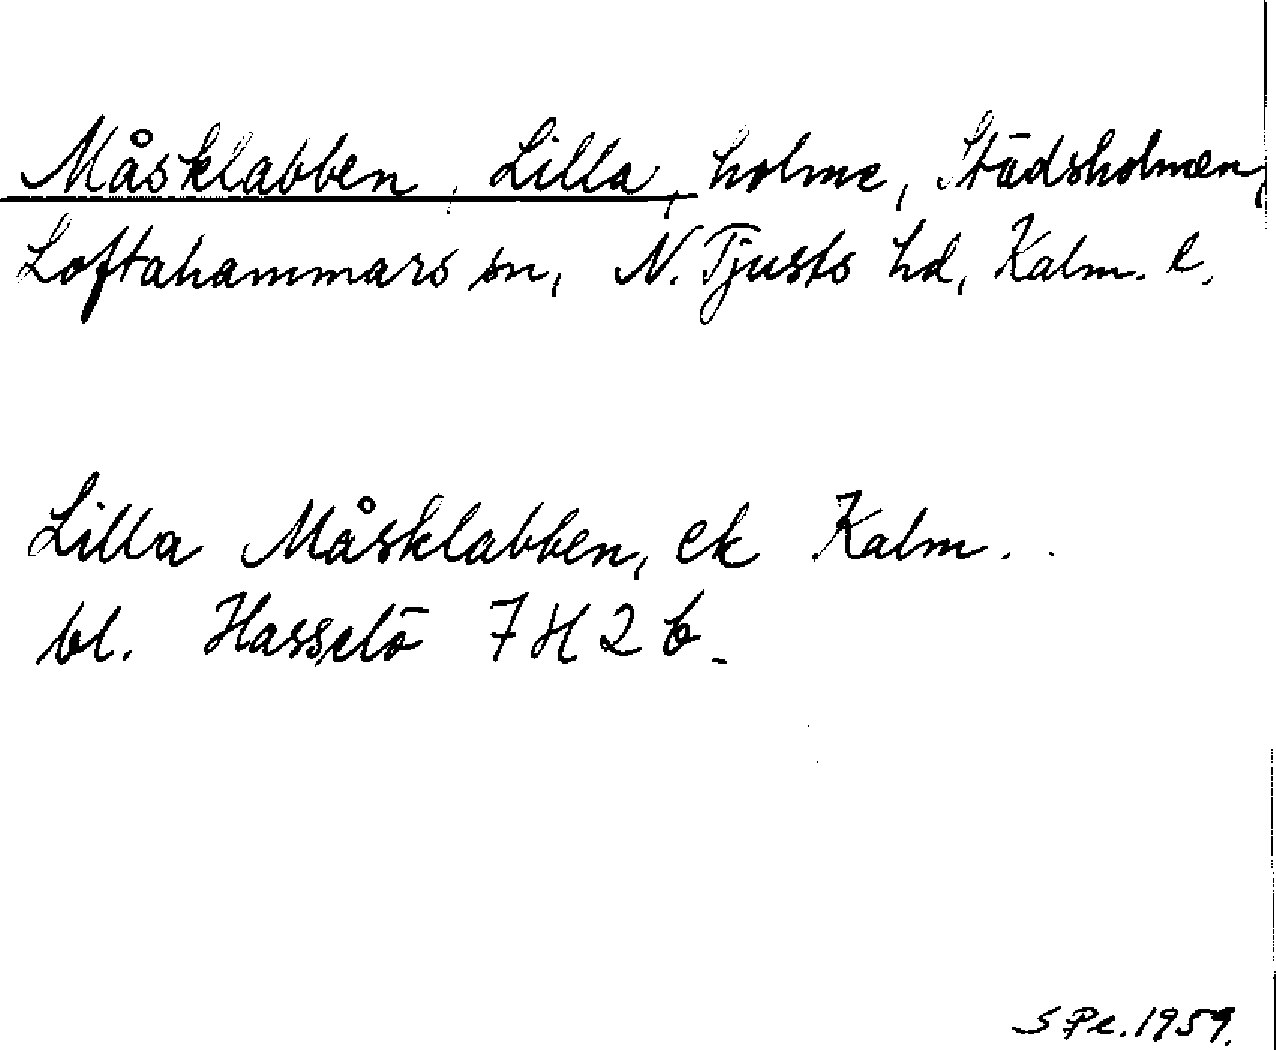 Måsklabben, Lilla, holme, Städsholmen,
Loftahammars sn, N. Tjusts hd, Kalm. l.
Lilla Måsklabben, ek Kalm.
bl. Hasselö 7H2b.
S Pe. 1959.